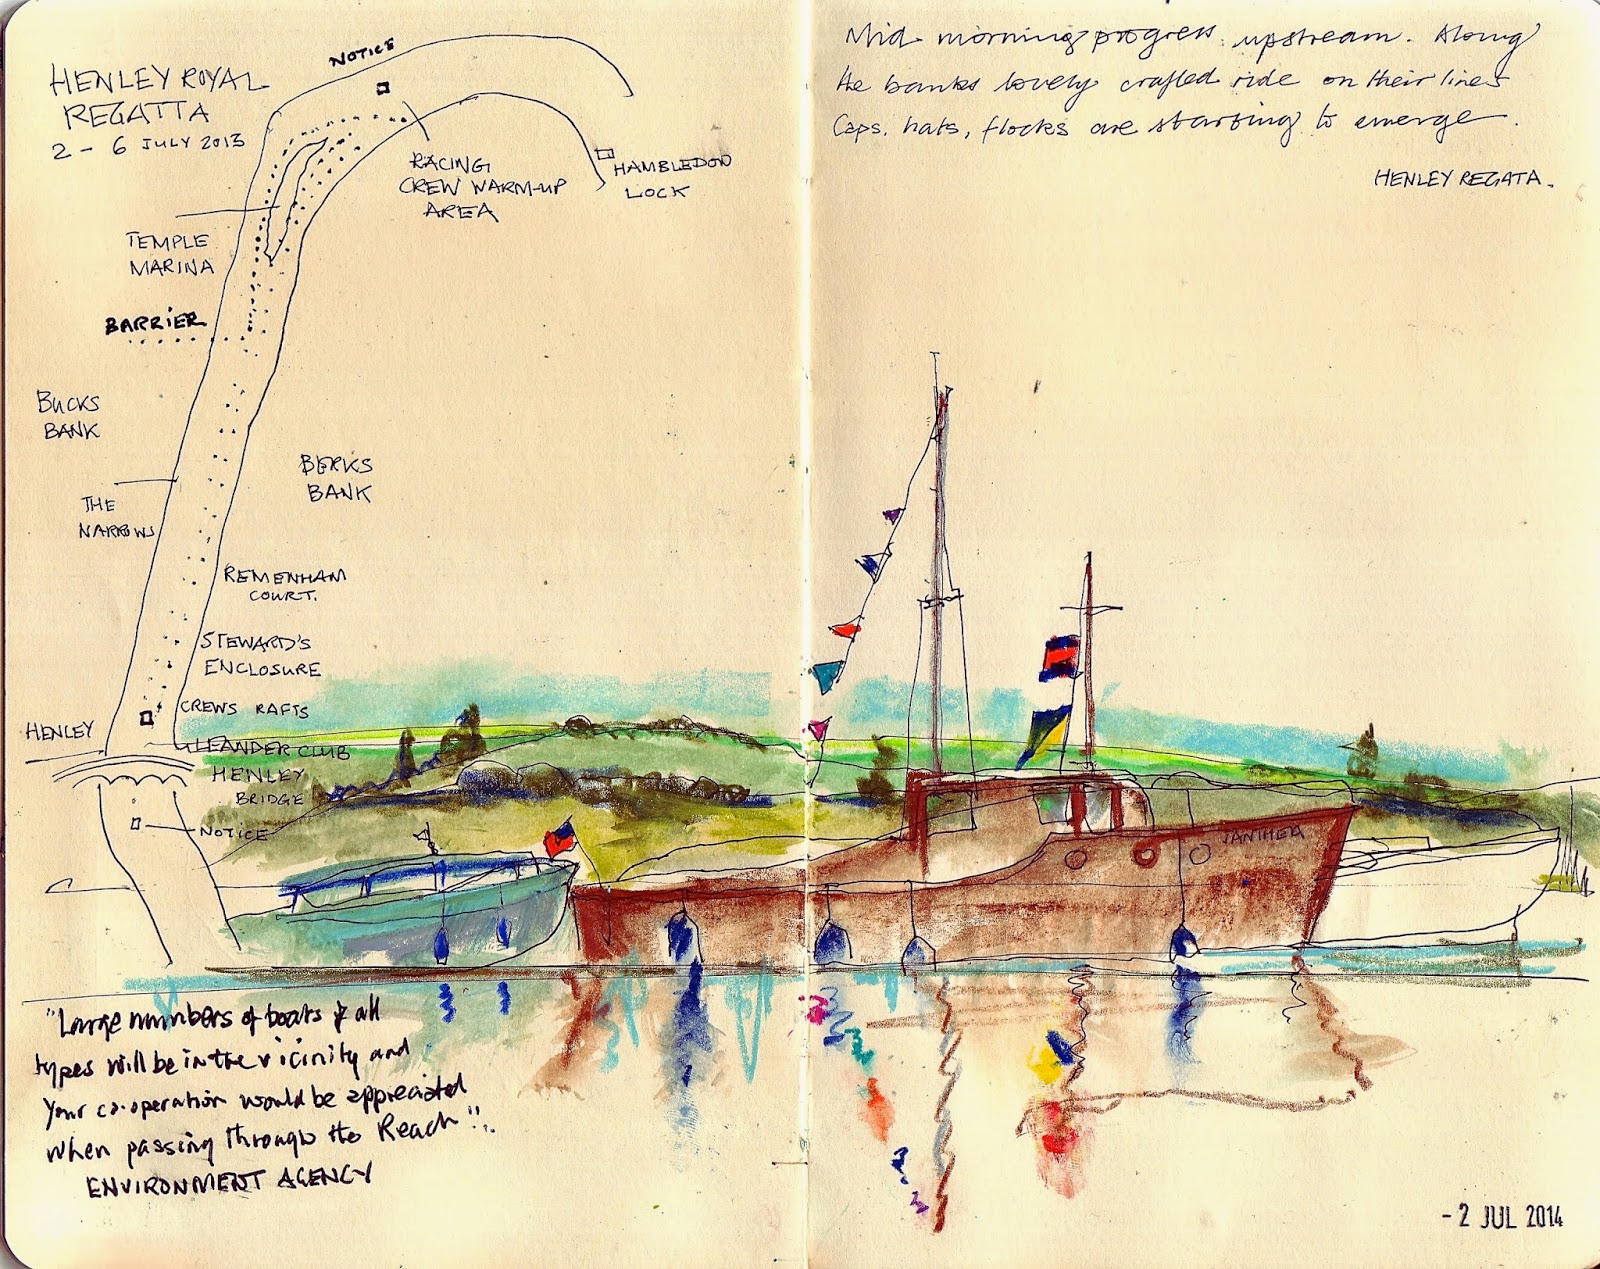 HENLEY ROYAL
REGATTA
2 - 6 JULY 2013
NOTICE
RACING
CREW WARM-UP
AREA
HAMBLEDON
LOCK
TEMPLE
MARINA
BARRIER
BUCKS
BANK
BERKS
BANK
THE
NARROWS
REMENHAM
COURT.
STEWARD'S
ENCLOSURE
CREWS RAFTS
HENLEY
LEANDER CLUB
HENLEY
BRIDGE
NOTICE
"Large numbers of boats of all
types will be in the vicinity and
your co-operation would be appreciated
when passing through the Reach".
ENVIRONMENT AGENCY
Mid morning progress upstream. Along
the banks lovely crafted ride on their lines
Caps, hats, flocks are starting to emerge.
HENLEY REGATA.
JANTHEA
- 2 JUL 2014